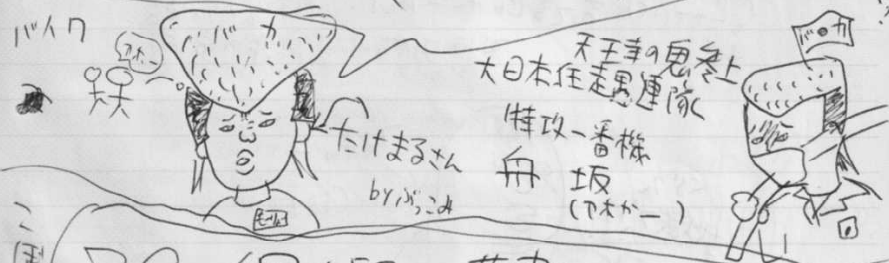 バイク
アホー
バカ
たけまるさん
by ぶっこみ
天王寺の鬼参上
大日本住走愚連隊
特攻一番機
舟 坂
(アホガー)
バ・カ